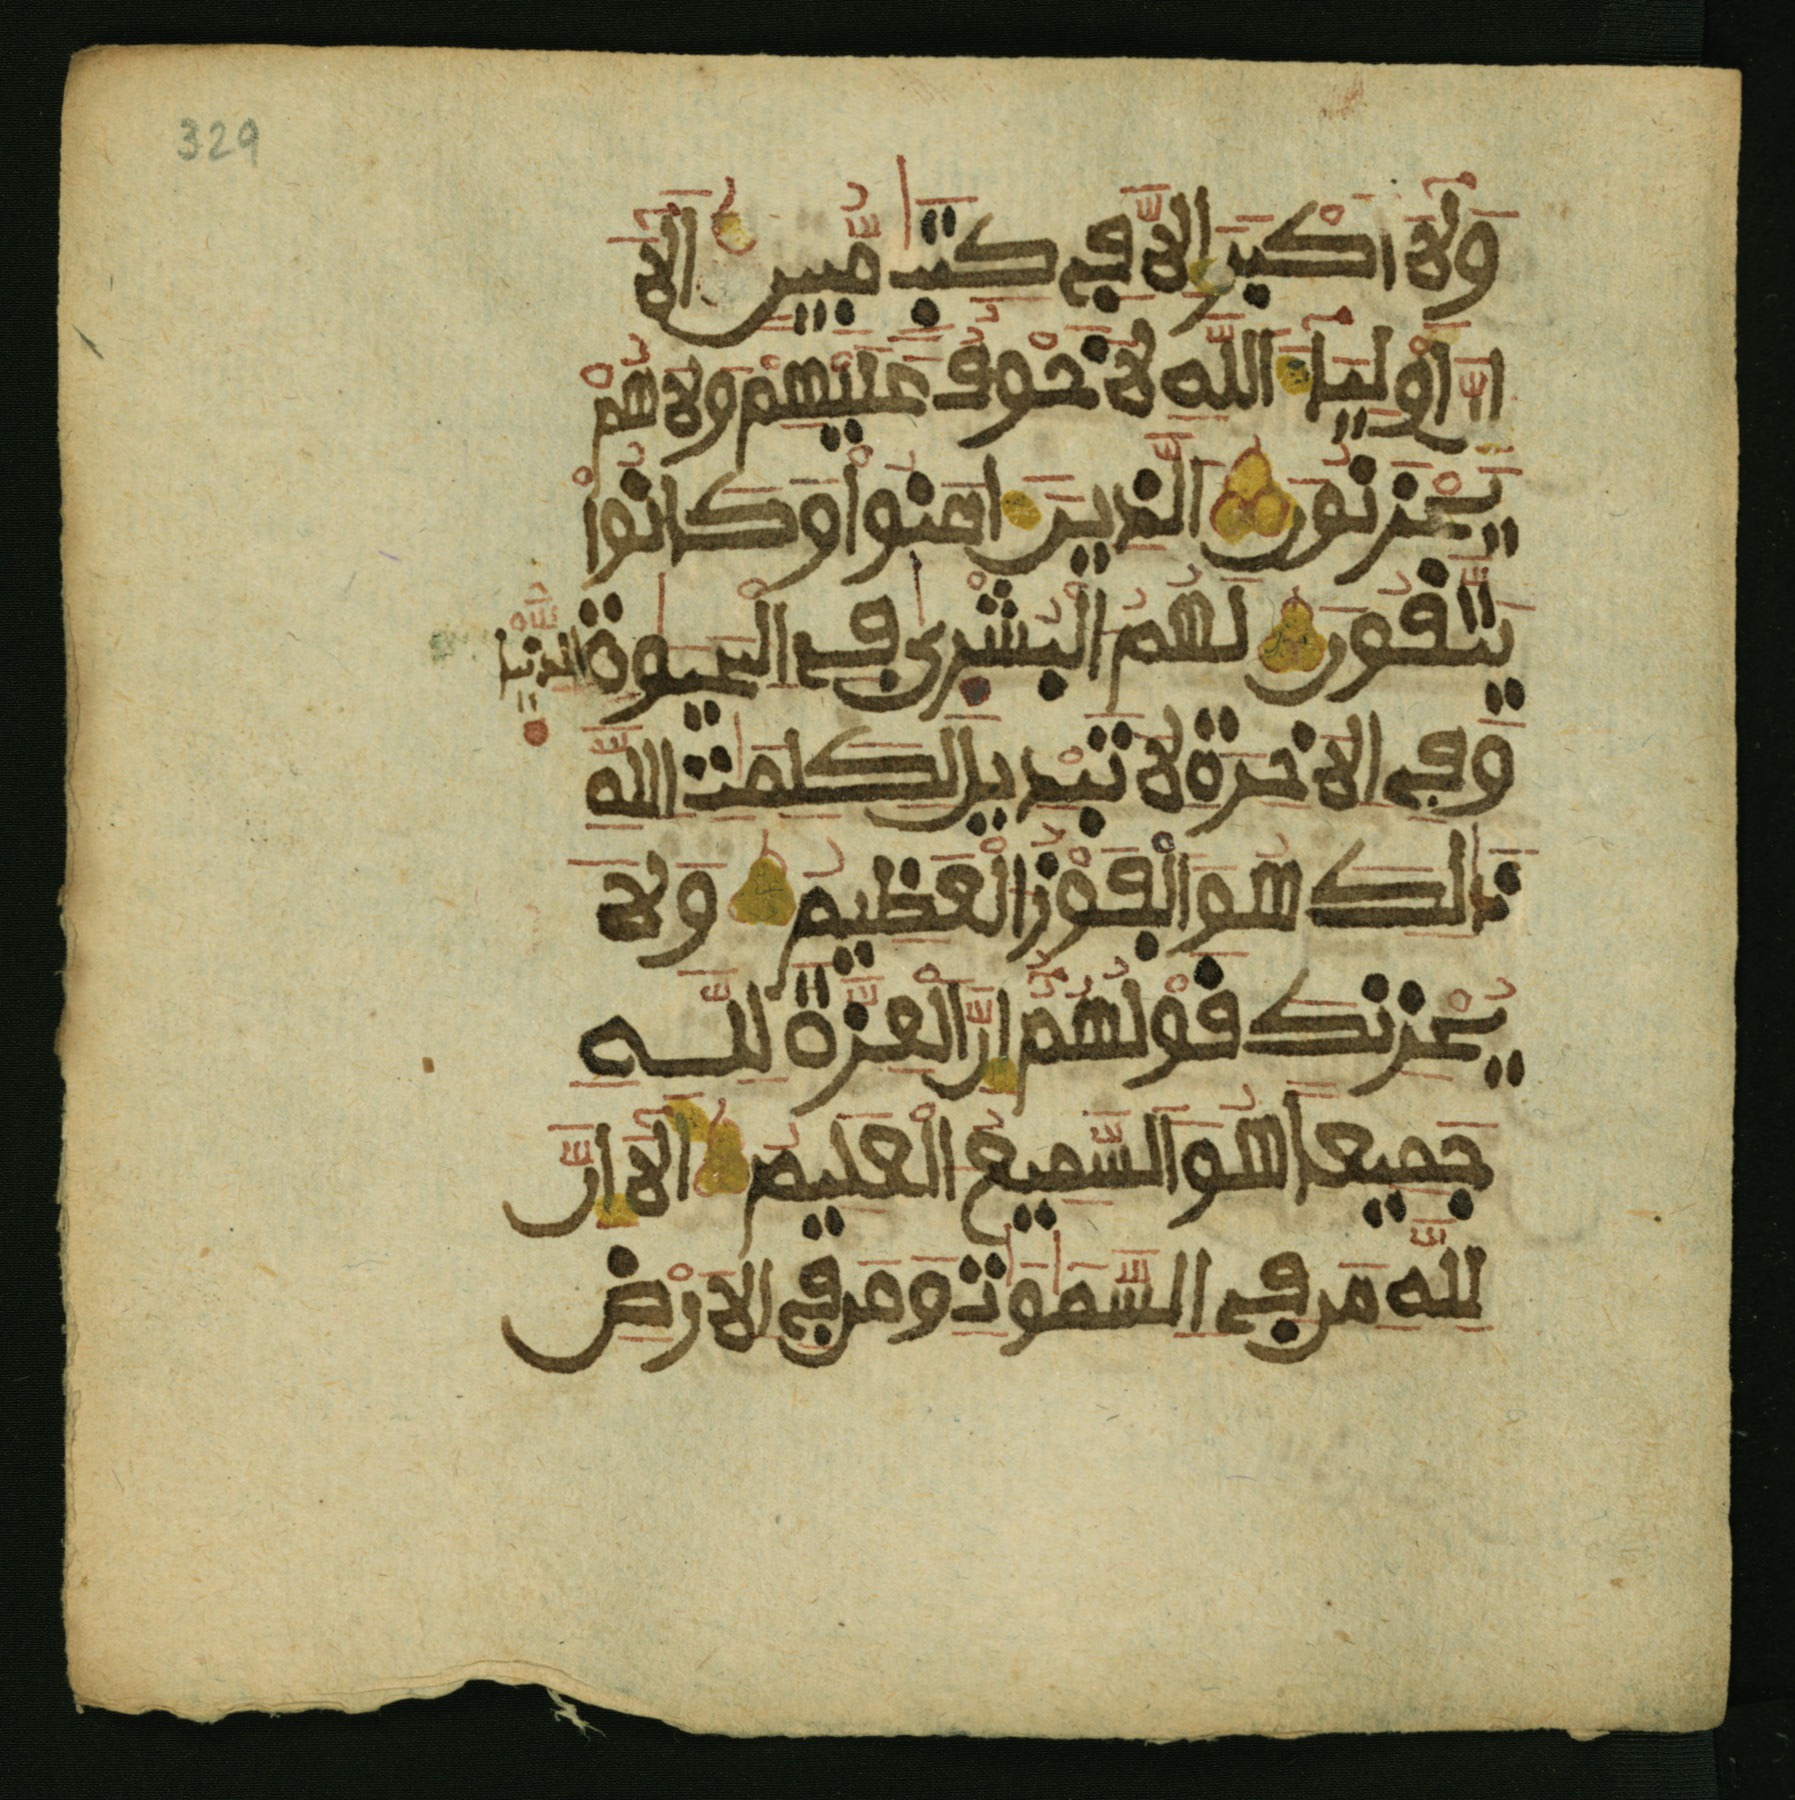 329
وَلَا أَكْبَرَ إِلَّا فِي كِتَٰبٍ مُّبِينٍ أَلَا
إِنَّ أَوْلِيَاءَ اللَّهِ لَا خَوْفٌ عَلَيْهِمْ وَلَا هُمْ
يَحْزَنُونَ الَّذِينَ ءَامَنُوا وَكَانُوا
يَتَّقُونَ لَهُمُ الْبُشْرَىٰ فِي الْحَيَوٰةِ الدُّنْيَا
وَفِي الْأَخِرَةِ لَا تَبْدِيلَ لِكَلِمَٰتِ اللَّهِ
ذَٰلِكَ هُوَ الْفَوْزُ الْعَظِيمُ وَلَا
يُحْزِنكَ قَوْلُهُمْ إِنَّ الْعِزَّةَ لِلَّهِ
جَمِيعًا هُوَ السَّمِيعُ الْعَلِيمُ أَلَا إِنَّ
لِلَّهِ مَن فِي السَّمَٰوَٰتِ وَمَن فِي الْأَرْضِ